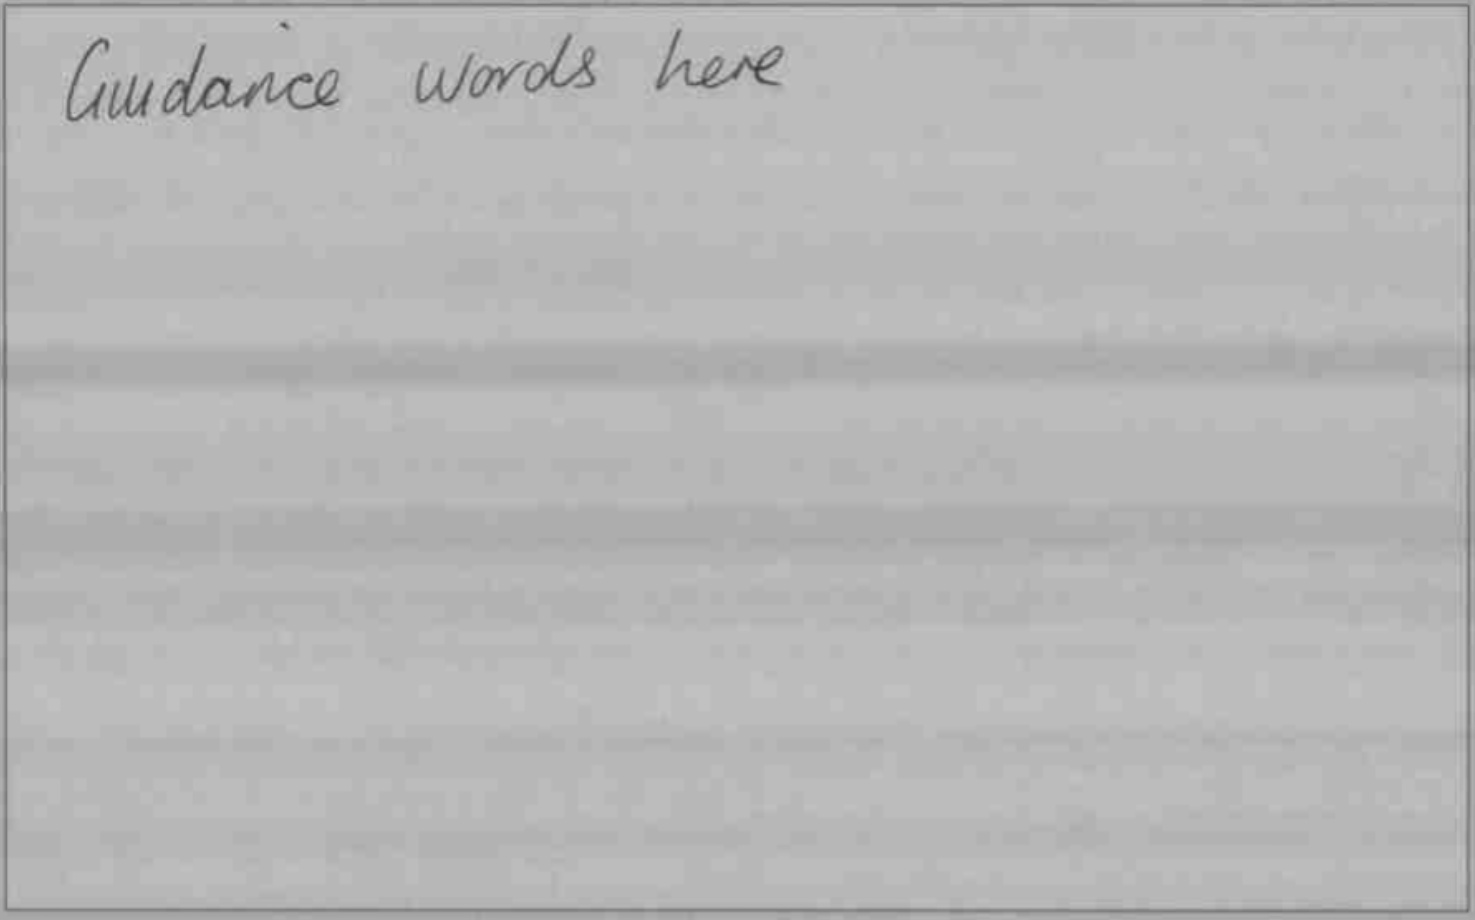 Guidance words here